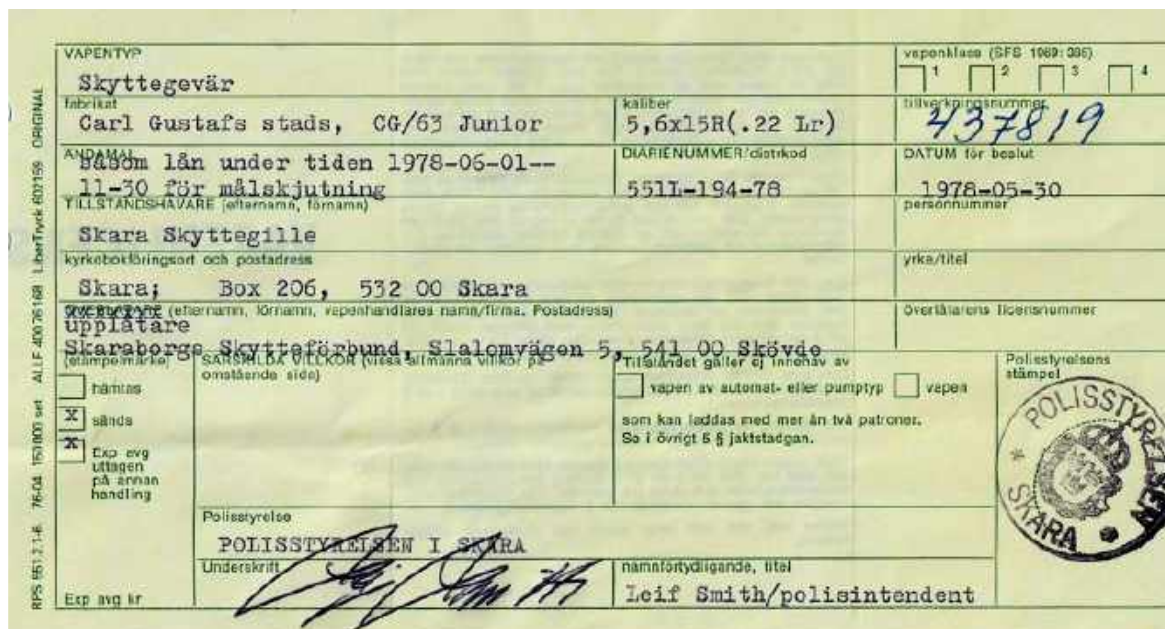 VAPENTYP
Skyttegevär
vapenklass (SFS 1969:386)
1 2 3 4
fabrikat
Carl Gustafs stads, CG/63 Junior
kaliber
5,6x15R(.22 Lr)
tillverkningsnummer
437819
ÄNDAMÅL
såsom lån under tiden 1978-06-01--
11-30 för målskjutning
DIARIENUMMER/distrkod
551L-194-78
DATUM för beslut
1978-05-30
TILLSTÅNDSHAVARE (efternamn, förnamn)
Skara Skyttegille
personnummer
kyrkobokföringsort och postadress
Skara; Box 206, 532 00 Skara
yrke/titel
ÖVERLÅTARE (efternamn, förnamn, vapenhandlares namn/firma. Postadress)
upplåtare
Skaraborgs Skytteförbund, Slalomvägen 5, 541 00 Skövde
överlåtarens licensnummer
(stämpelmärke)
hämtas
X sänds
X Exp avg
uttagen
på annan
handling
Exp avg kr
SÄRSKILDA VILLKOR (vissa allmänna villkor på
omstående sida)
Tillståndet gäller ej innehav av
vapen av automat- eller pumptyp vapen
som kan laddas med mer än två patroner.
Se i övrigt 5 § jaktstadgan.
Polisstyrelsens
stämpel
POLISSTYRELSEN
SKARA
Polisstyrelse
POLISSTYRELSEN I SKARA
Underskrift
namnförtydligande, titel
Leif Smith/polisintendent
RPS 551.2.1-6 76-04 150 800 set ALLF 400 76 168 LiberTryck 602159 ORIGINAL